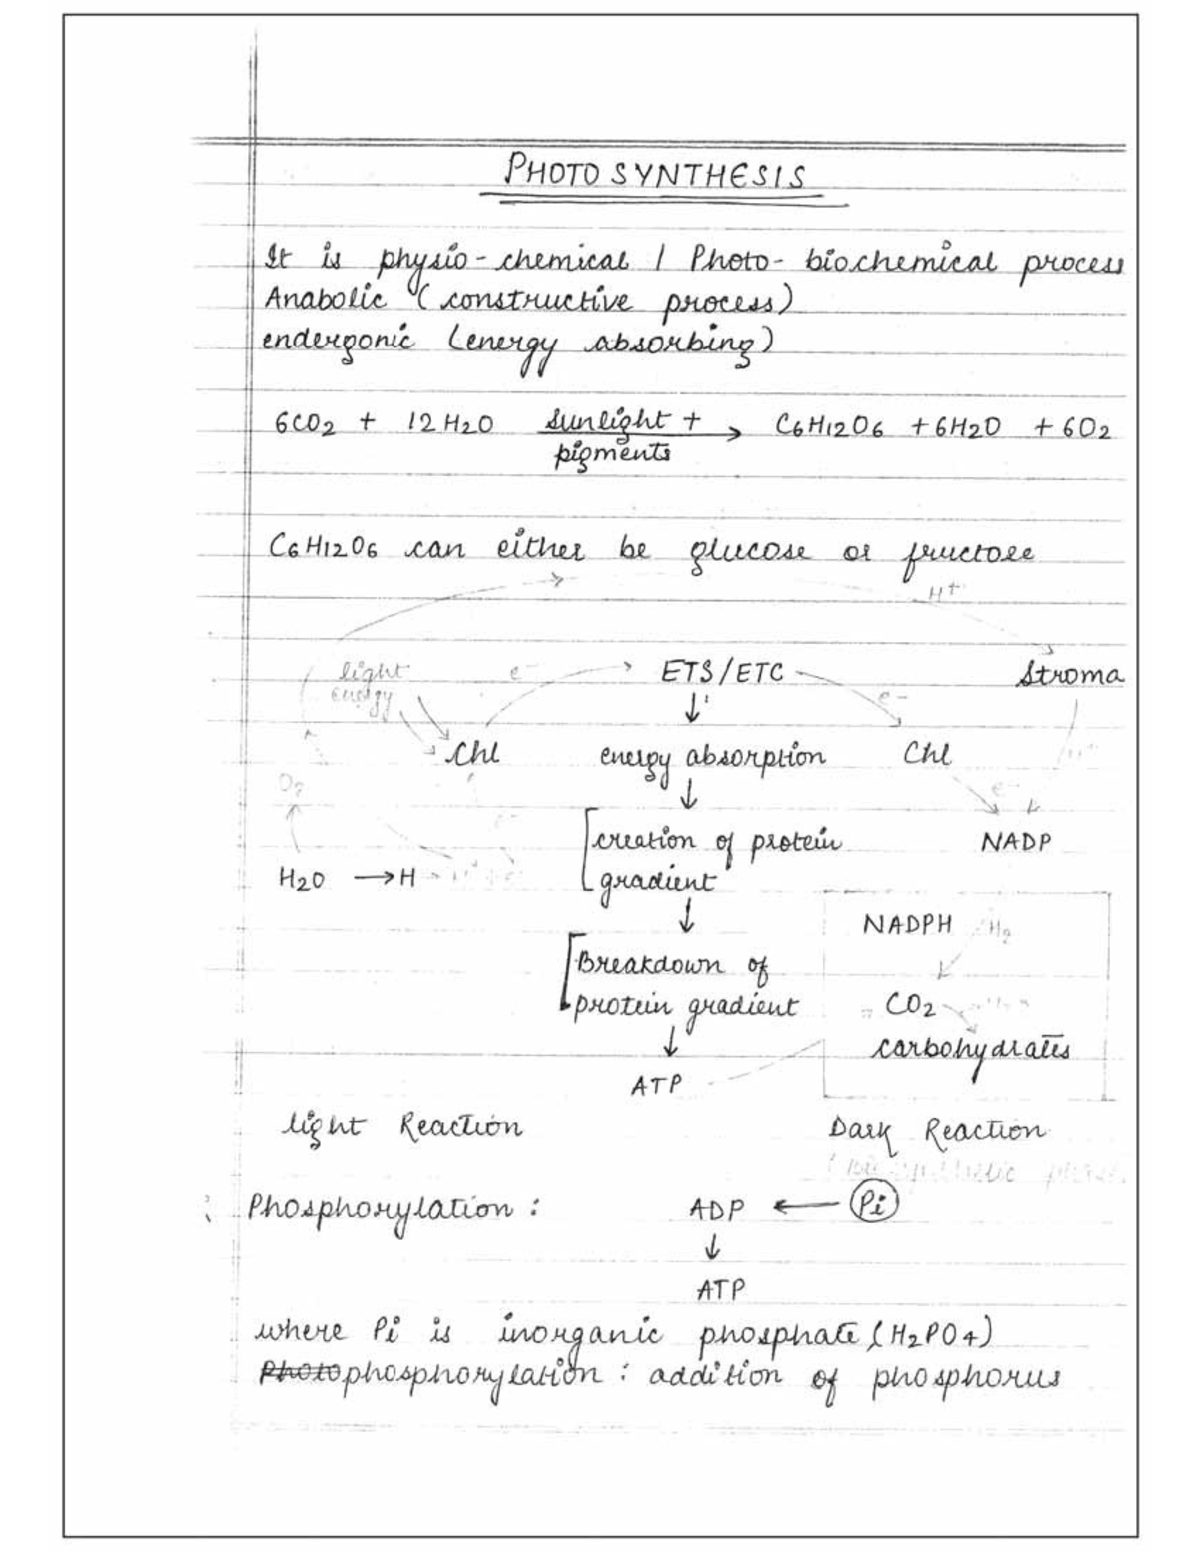 PHOTOSYNTHESIS
It is physio-chemical / Photo-biochemical process
Anabolic (constructive process)
endergonic (energy absorbing)
6CO2 + 12H2O sunlight + → C6H12O6 + 6H2O + 6O2
pigments
C6H12O6 can either be glucose or fructose
H+
light e- ETS/ETC Stroma
energy e-
↓
Chl energy absorption Chl H+
O2 ↓ e-
e- creation of protein NADP
H2O → H gradient
↓ NADPH H2
Breakdown of
protein gradient CO2
↓ carbohydrates
ATP
light Reaction Dark Reaction
Phosphorylation : ADP ← Pi
↓
ATP
where Pi is inorganic phosphate (H2PO4)
Photophosphorylation : addition of phosphorus